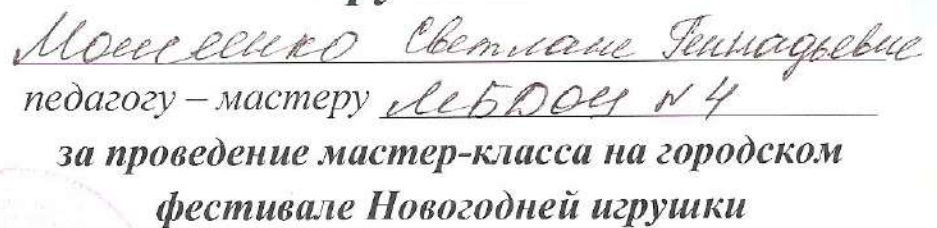 Светлане Геннадьевне
педагогу – мастеру МБДОУ №4
за проведение мастер-класса на городском
фестивале Новогодней игрушки